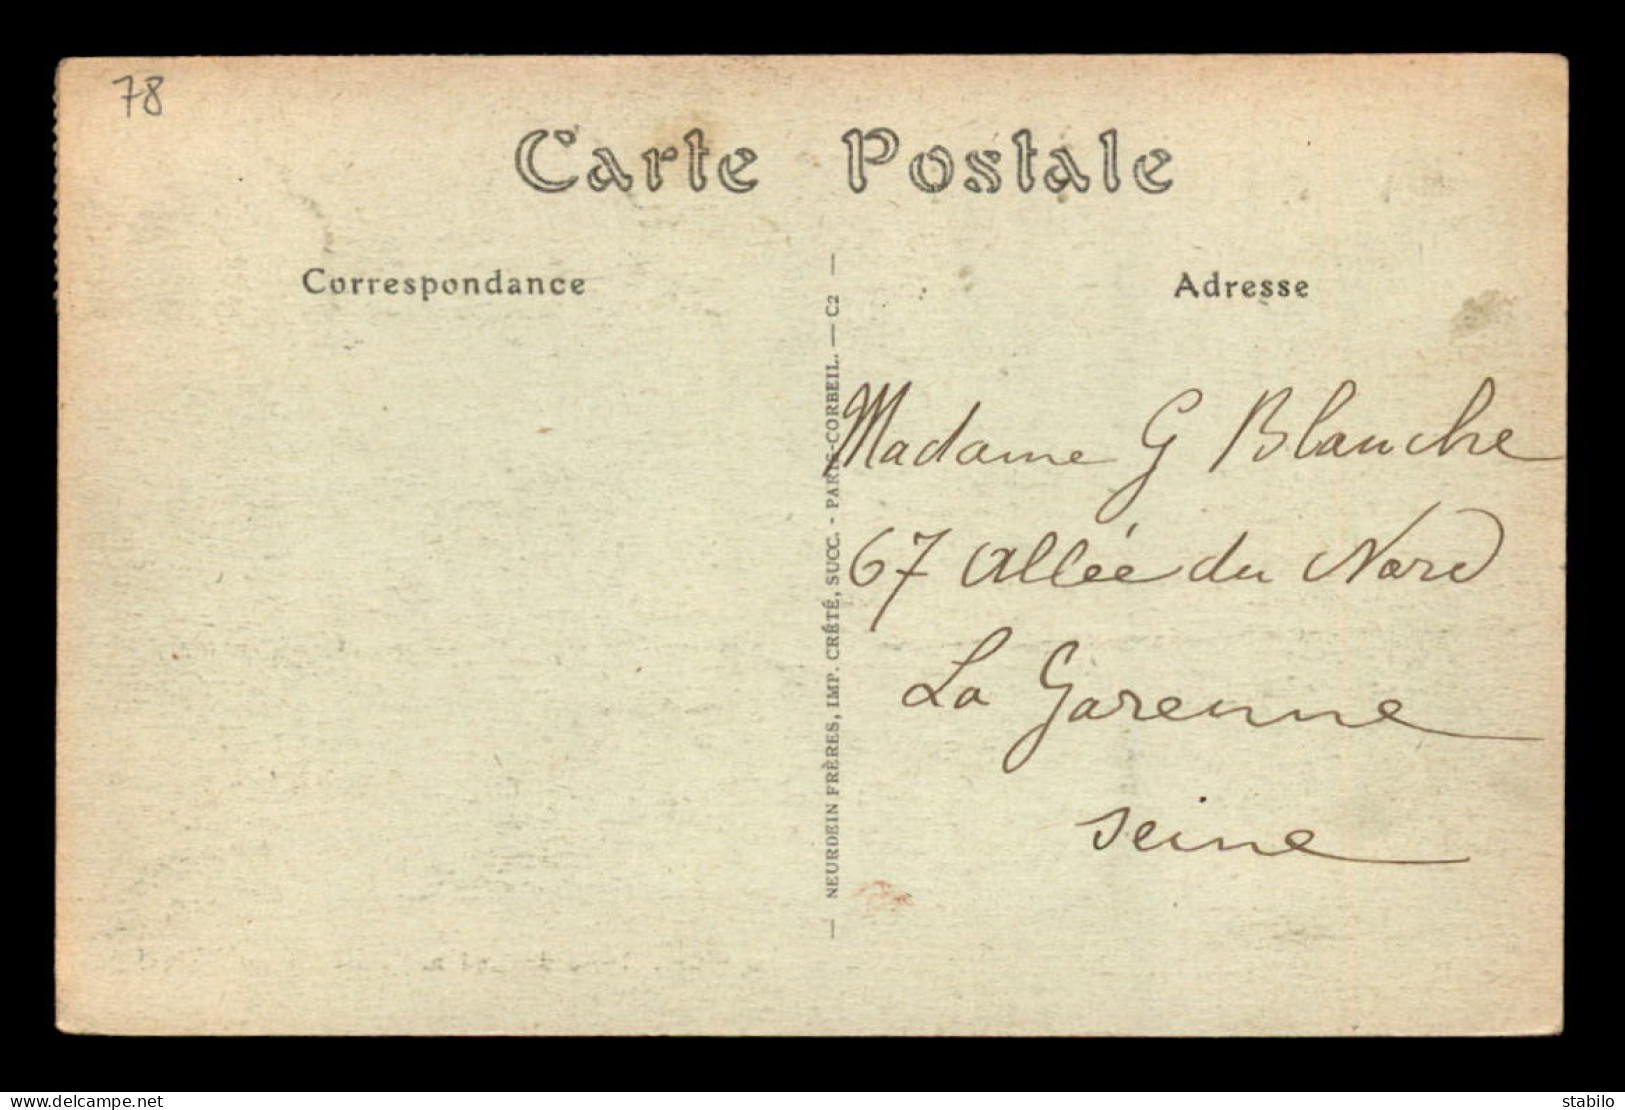 78
Carte Postale
Correspondance
Adresse
— NEURDEIN FRÈRES, IMP. CRÉTÉ, SUCC. - PARIS-CORBEIL. — C2 —
Madame G Blanche
67 Allée du Nord
La Garenne
Seine
www.delcampe.net
stabilo